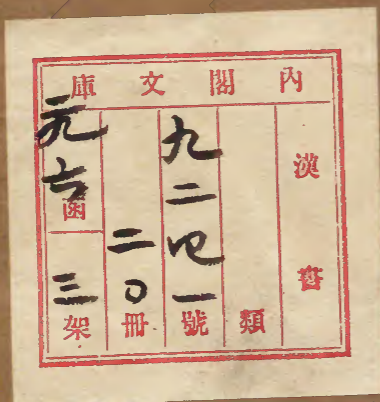 內閣文庫
漢書
類
九二四一號
二〇冊
函
三架